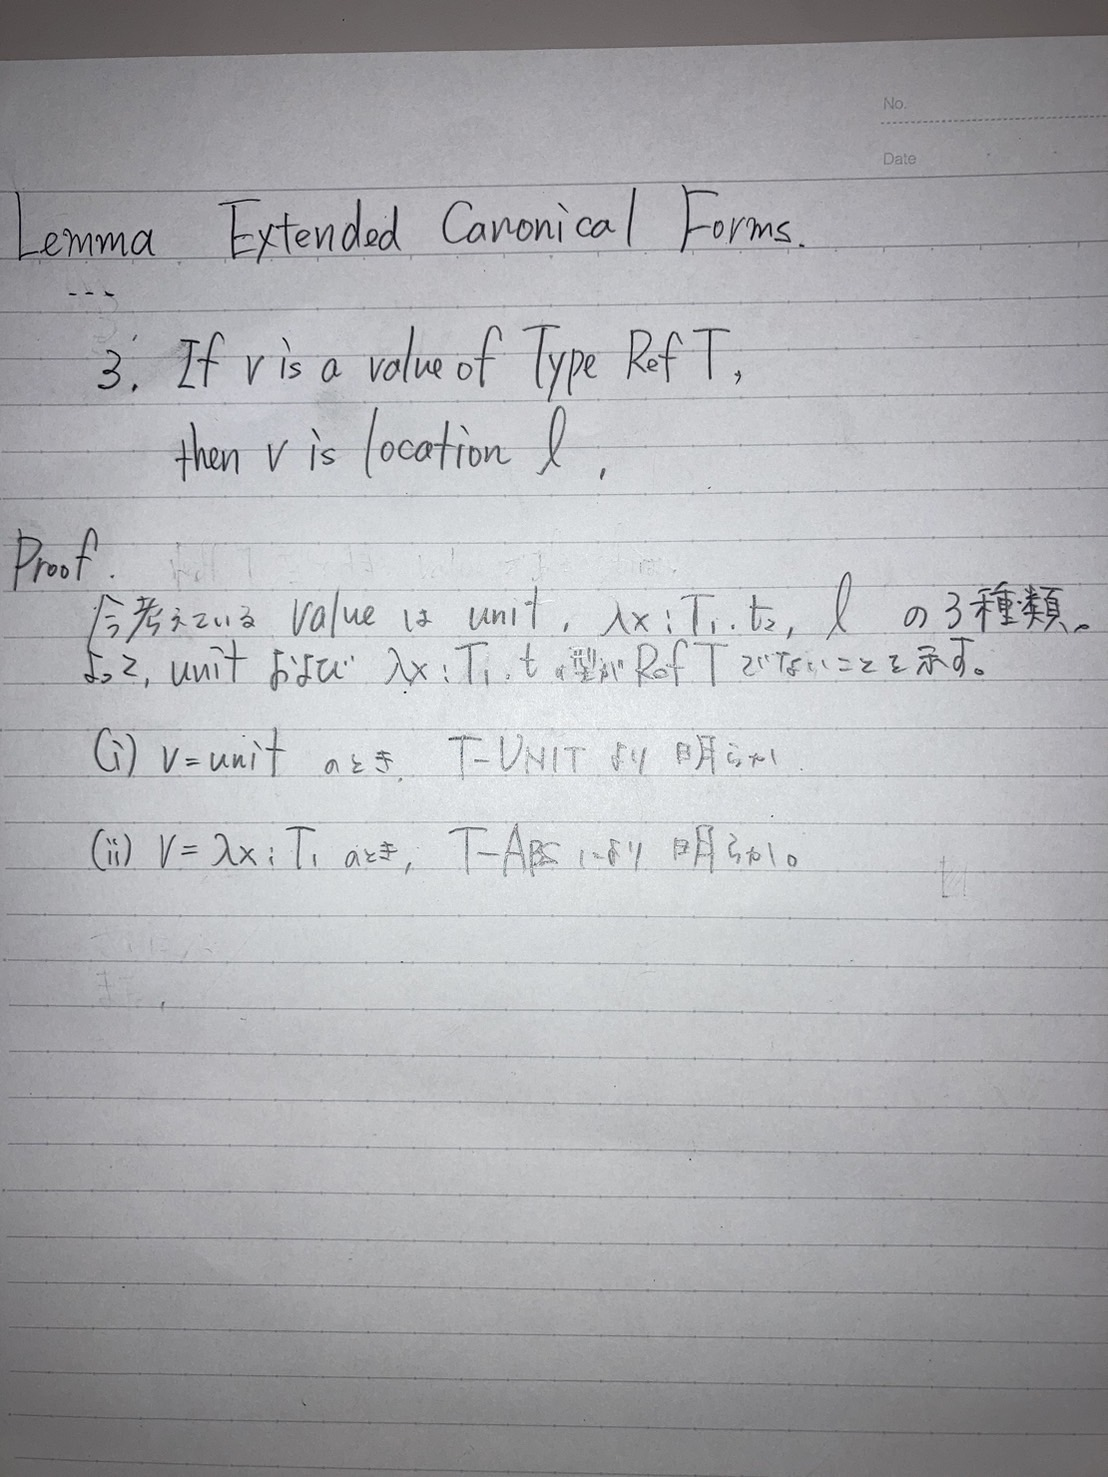 No.
Date
Lemma Extended Canonical Forms.
---
3. If v is a value of Type Ref T,
then v is location l.
Proof.
今考えている value は unit, λx:T₁.t₂, l の3種類。
よって, unit および λx:T₁.t の型が Ref T でないことを示す。
(i) v=unit のとき, T-UNIT より 明らか.
(ii) v=λx:T₁ のとき, T-ABS により 明らか。